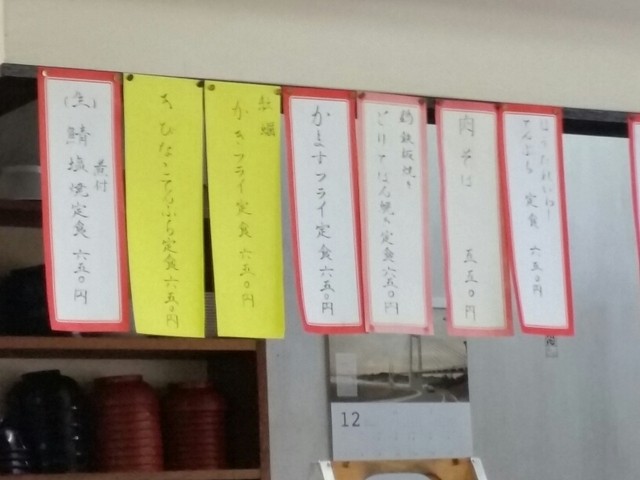 (生)鯖塩焼定食 六五〇円
煮付
きびなごてんぷら定食 六五〇円
牡蠣
かきフライ定食 六五〇円
かますフライ定食 六五〇円
鶏鉄板焼き
とりてっぱん焼き定食 六五〇円
肉そば 五五〇円
定食 六五〇円
12